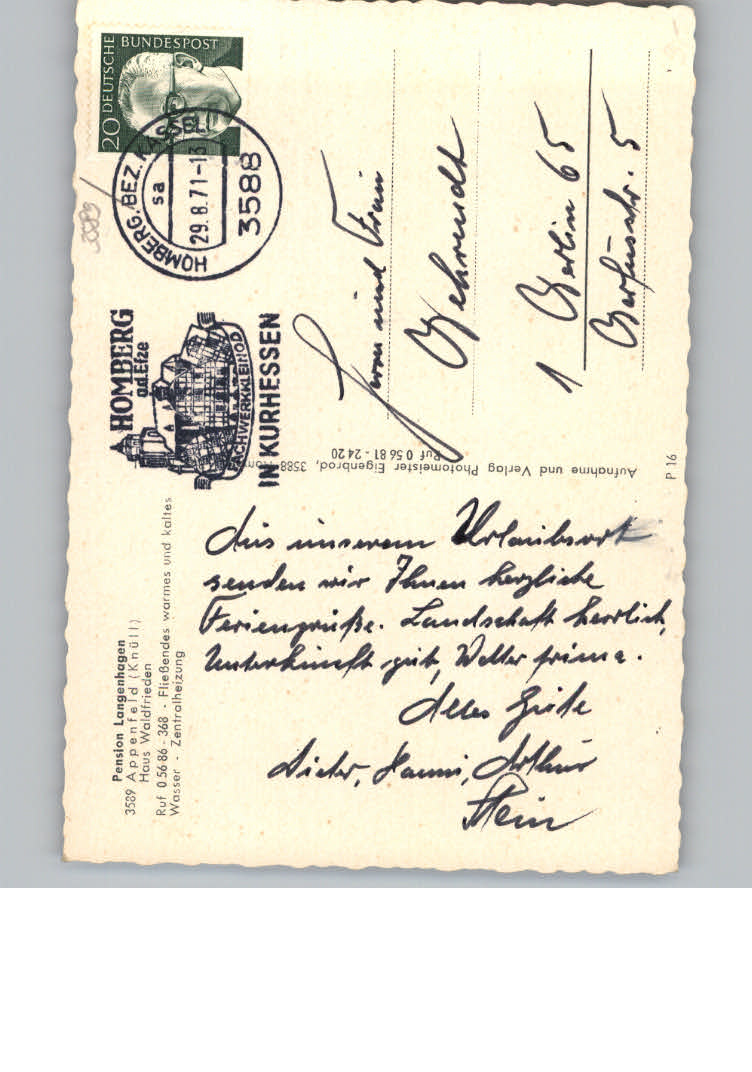 Pension Langenhagen
3589 Appenfeld (Knüll)
Haus Waldfrieden
Ruf 0 56 86 - 368 - Fließendes warmes und kaltes
Wasser - Zentralheizung
Aus unserem Urlaubsort
senden wir Ihnen herzliche
Feriengrüße. Landschaft herrlich,
Unterkunft gut, Wetter prima.
Alles Gute
Dieter, Hanni, Arthur
Stein
Aufnahme und Verlag Photomeister Eigenbrod, 3588
Ruf 0 56 81 - 24 20
P 16
HOMBERG
a.d. Efze
FACHWERKKLEINOD
IN KURHESSEN
HOMBERG, BEZ. KASSEL
sa
29.8.71-13
3588
DEUTSCHE BUNDESPOST
20
3589
Herrn und Frau
Behrendt
1 Berlin 65
5